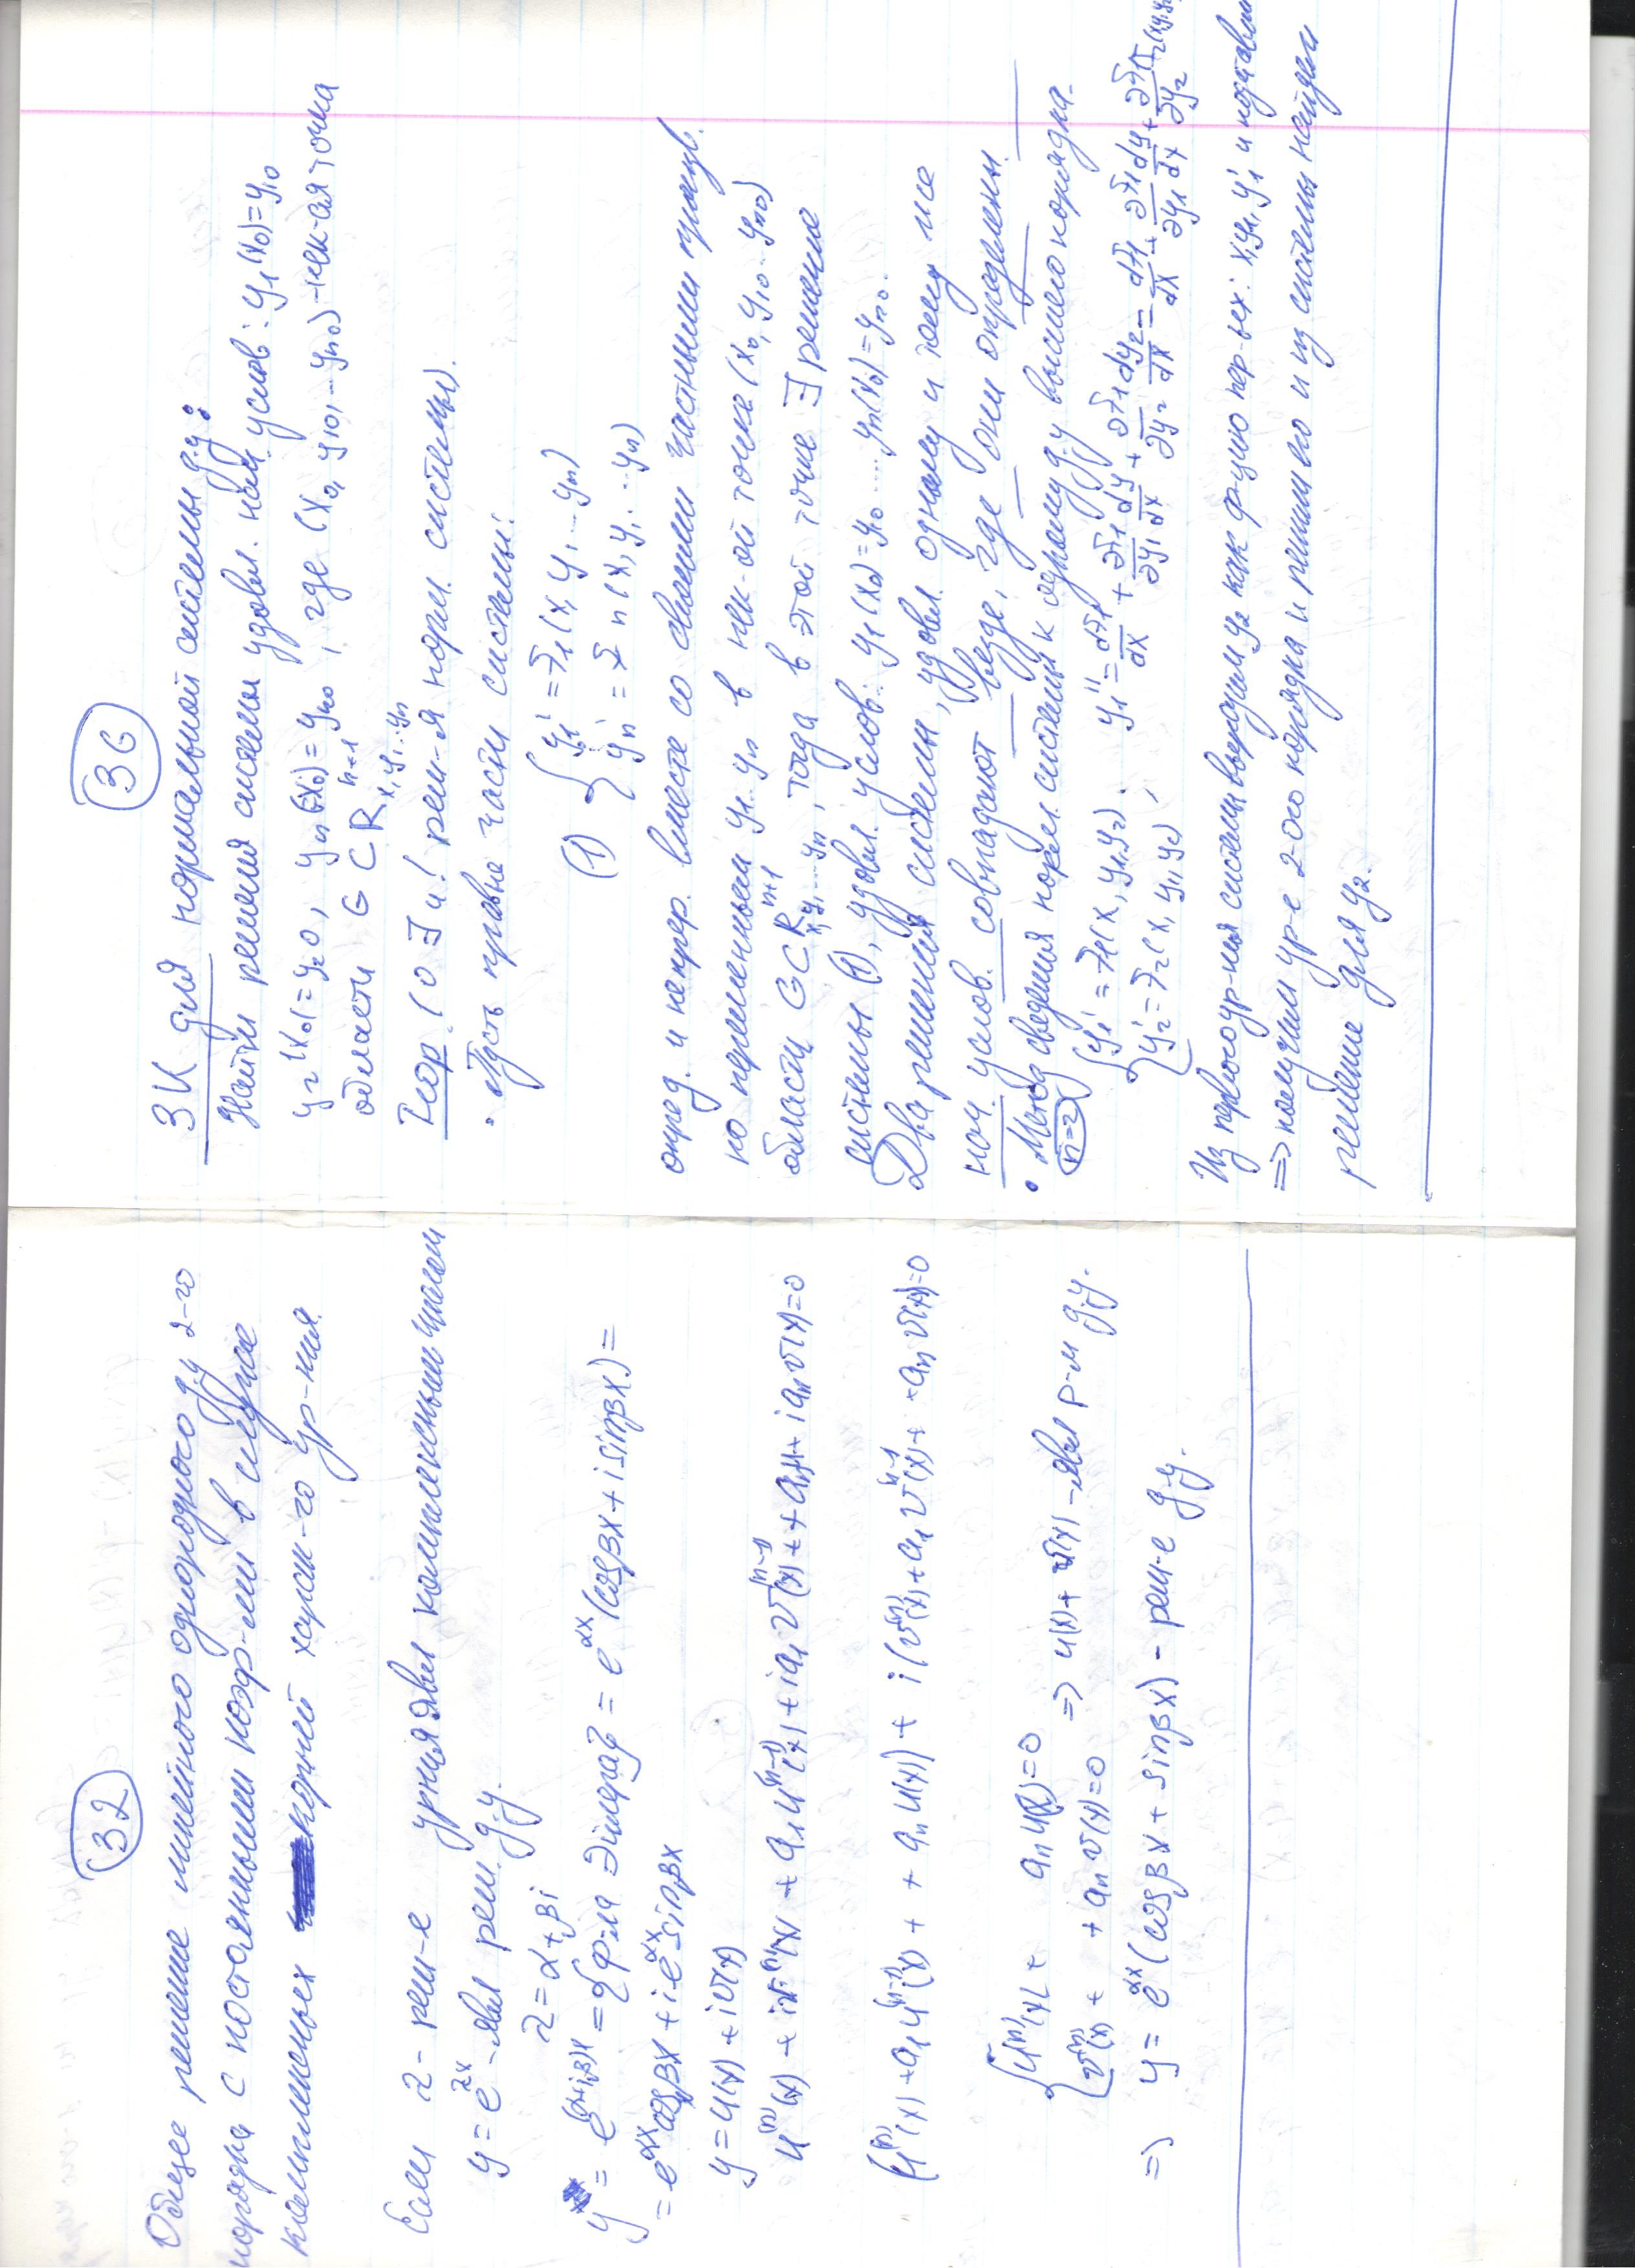 32
Общее решение линейного однородного д.у 2-го
порядка с постоянными коэф-ми в случае
комплексных корней хар-го ур-ния.
Если λ - реш-е ур-ния явл комплексным числом
y = e^{λx} - явл реш. д.у.
λ = α + βi
y = e^{(α+iβ)x} = {ф-ла Эйлера} = e^{αx}(cosβx + i sinβx) =
= e^{αx}cosβx + i e^{αx}sinβx
y = u(x) + iv(x)
u^{(n)}(x) + iv^{(n)}(x) + a₁u^{(n-1)}(x) + ia₁v^{(n-1)}(x) + + aₙu + iaₙv(x) = 0
(u^{(n)}(x) + a₁u^{(n-1)}(x) + + aₙu(x)) + i(v^{(n)}(x) + a₁v^{n-1}(x) + + aₙv(x) = 0
{ u^{(n)}(x) + aₙu(x) = 0
v^{(n)}(x) + + aₙv(x) = 0 => u(x) + v(x) - явл р-м д.у.
=> y = e^{αx}(cosβx + sinβx) - реш-е д.у.
36
ЗК для нормальной системы д.у:
Найти решения системы удовл. нач. услов: y₁(x₀) = y₁₀
y₂(x₀) = y₂₀, yₙ(x₀) = yₙ₀, где (x₀, y₁₀, .. yₙ₀) - нек-ая точка
области G ⊂ R^{n+1}_{x, y₁...yₙ}
Теор. (о ∃ и ! реш-я норм. системы).
• Пусть правые части системы:
(1) { y₁' = f₁(x, y₁ ... yₙ)
yₙ' = fₙ(x, y₁ ... yₙ)
опред. и непрер. вместе со своими частными произв.
по переменным y₁ .. yₙ в нек-ой точке (x₀, y₁₀ .. yₙ₀)
области G ⊂ R^{n+1}_{x, y₁...yₙ}, тогда в этой точке ∃ решение
системы (1), удовл. услов: y₁(x₀) = y₁₀ .... yₙ(x₀) = yₙ₀.
Два решения системы, удовл. одному и тому же
нач. услов. совпадают везде, где они определены.
• Метод сведения норм. системы к одному д.у высшего порядка.
n=2 { y₁' = f₁(x, y₁ y₂)
y₂' = f₂(x, y₁, y₂), y₁'' = df₁/dx + ∂f₁/∂y₁ dy/dx + ∂f₁/∂y₂ dy₂/dx = df₁/dx + ∂f₁/∂y₁ dy/dx + ∂f₁/∂y₂
Из первого ур-ния системы выразим y₂ как ф-цию пер-ых: x, y₁, y₁' и подставим
=> получим ур-е 2-ого порядка и решим его и из системы найдем
решение для y₂.